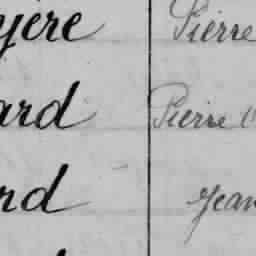 yère Pierre
ard Pierre
rd Jean